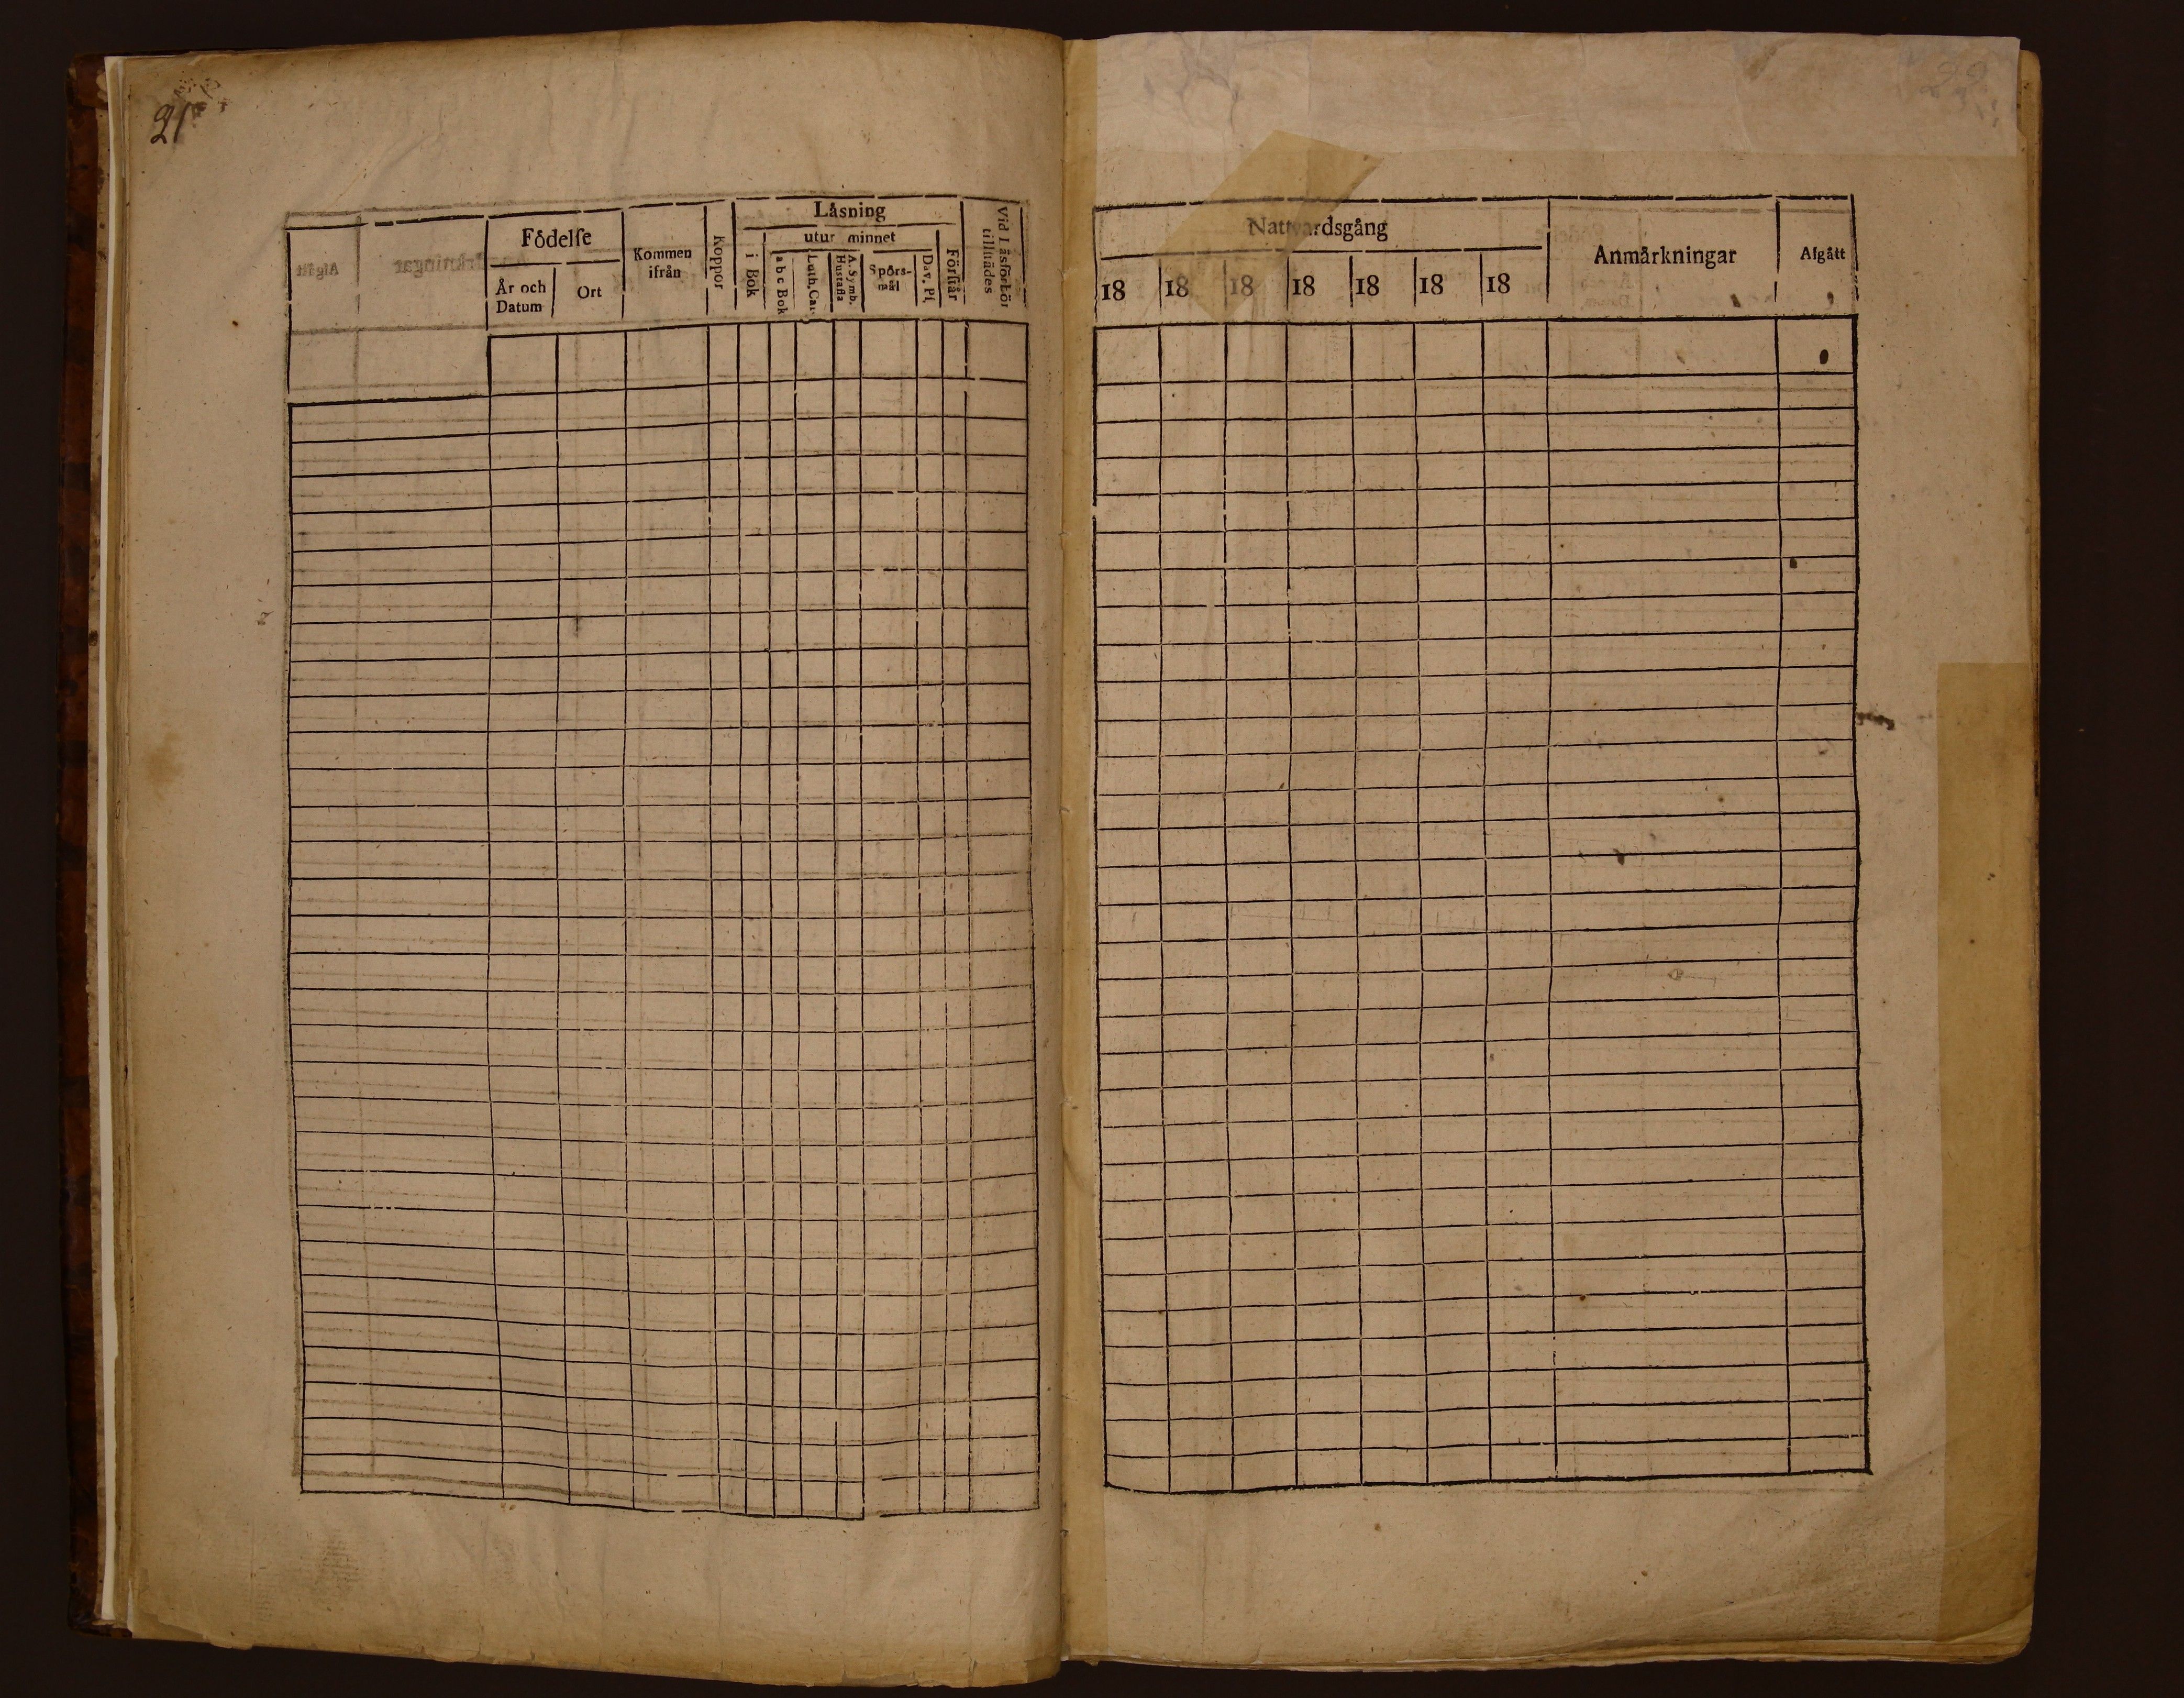 21
Födelſe
År och Datum
Ort
Kommen ifrån
Koppor
Låsning
i Bok
utur minnet
a b c Bok
Luth. Cat.
A. Symb. Hustafla
Spörs-mål
Dav. Pſ.
Förſtår
Vid Låsförhör tillſtädes
Nattvardsgång
18 18 18 18 18 18 18
Anmårkningar
Afgått